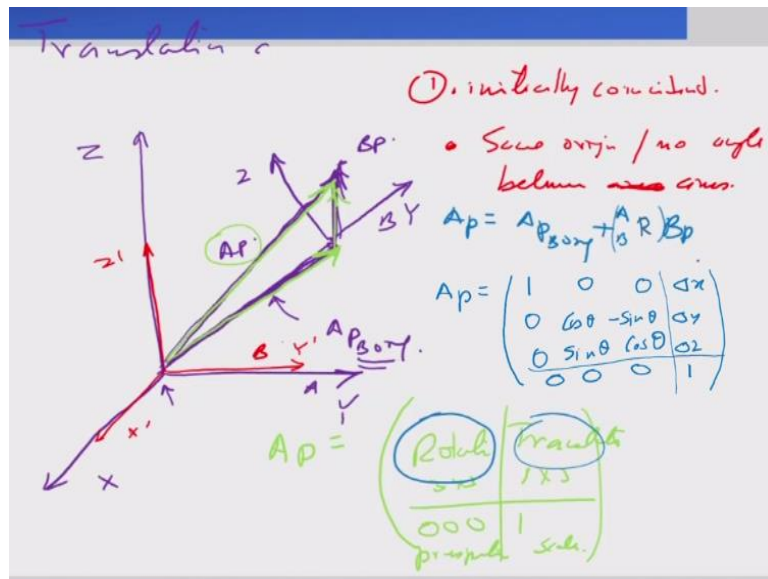 Translation
①. initially coincident.
• Same origin / no angle
between axes.
Z
BP.
Z
BY
Ap = A P_Borg + (A B R) Bp
AP.
Z'
Ap = ( 1 0 0 Δx
0 cosθ -sinθ Δy
0 sinθ cosθ Δz
0 0 0 1 )
A P_Borg.
B Y'
A
Y
X'
X
Ap =
Rotate Translate
3x3 1x3
000 1
scale.